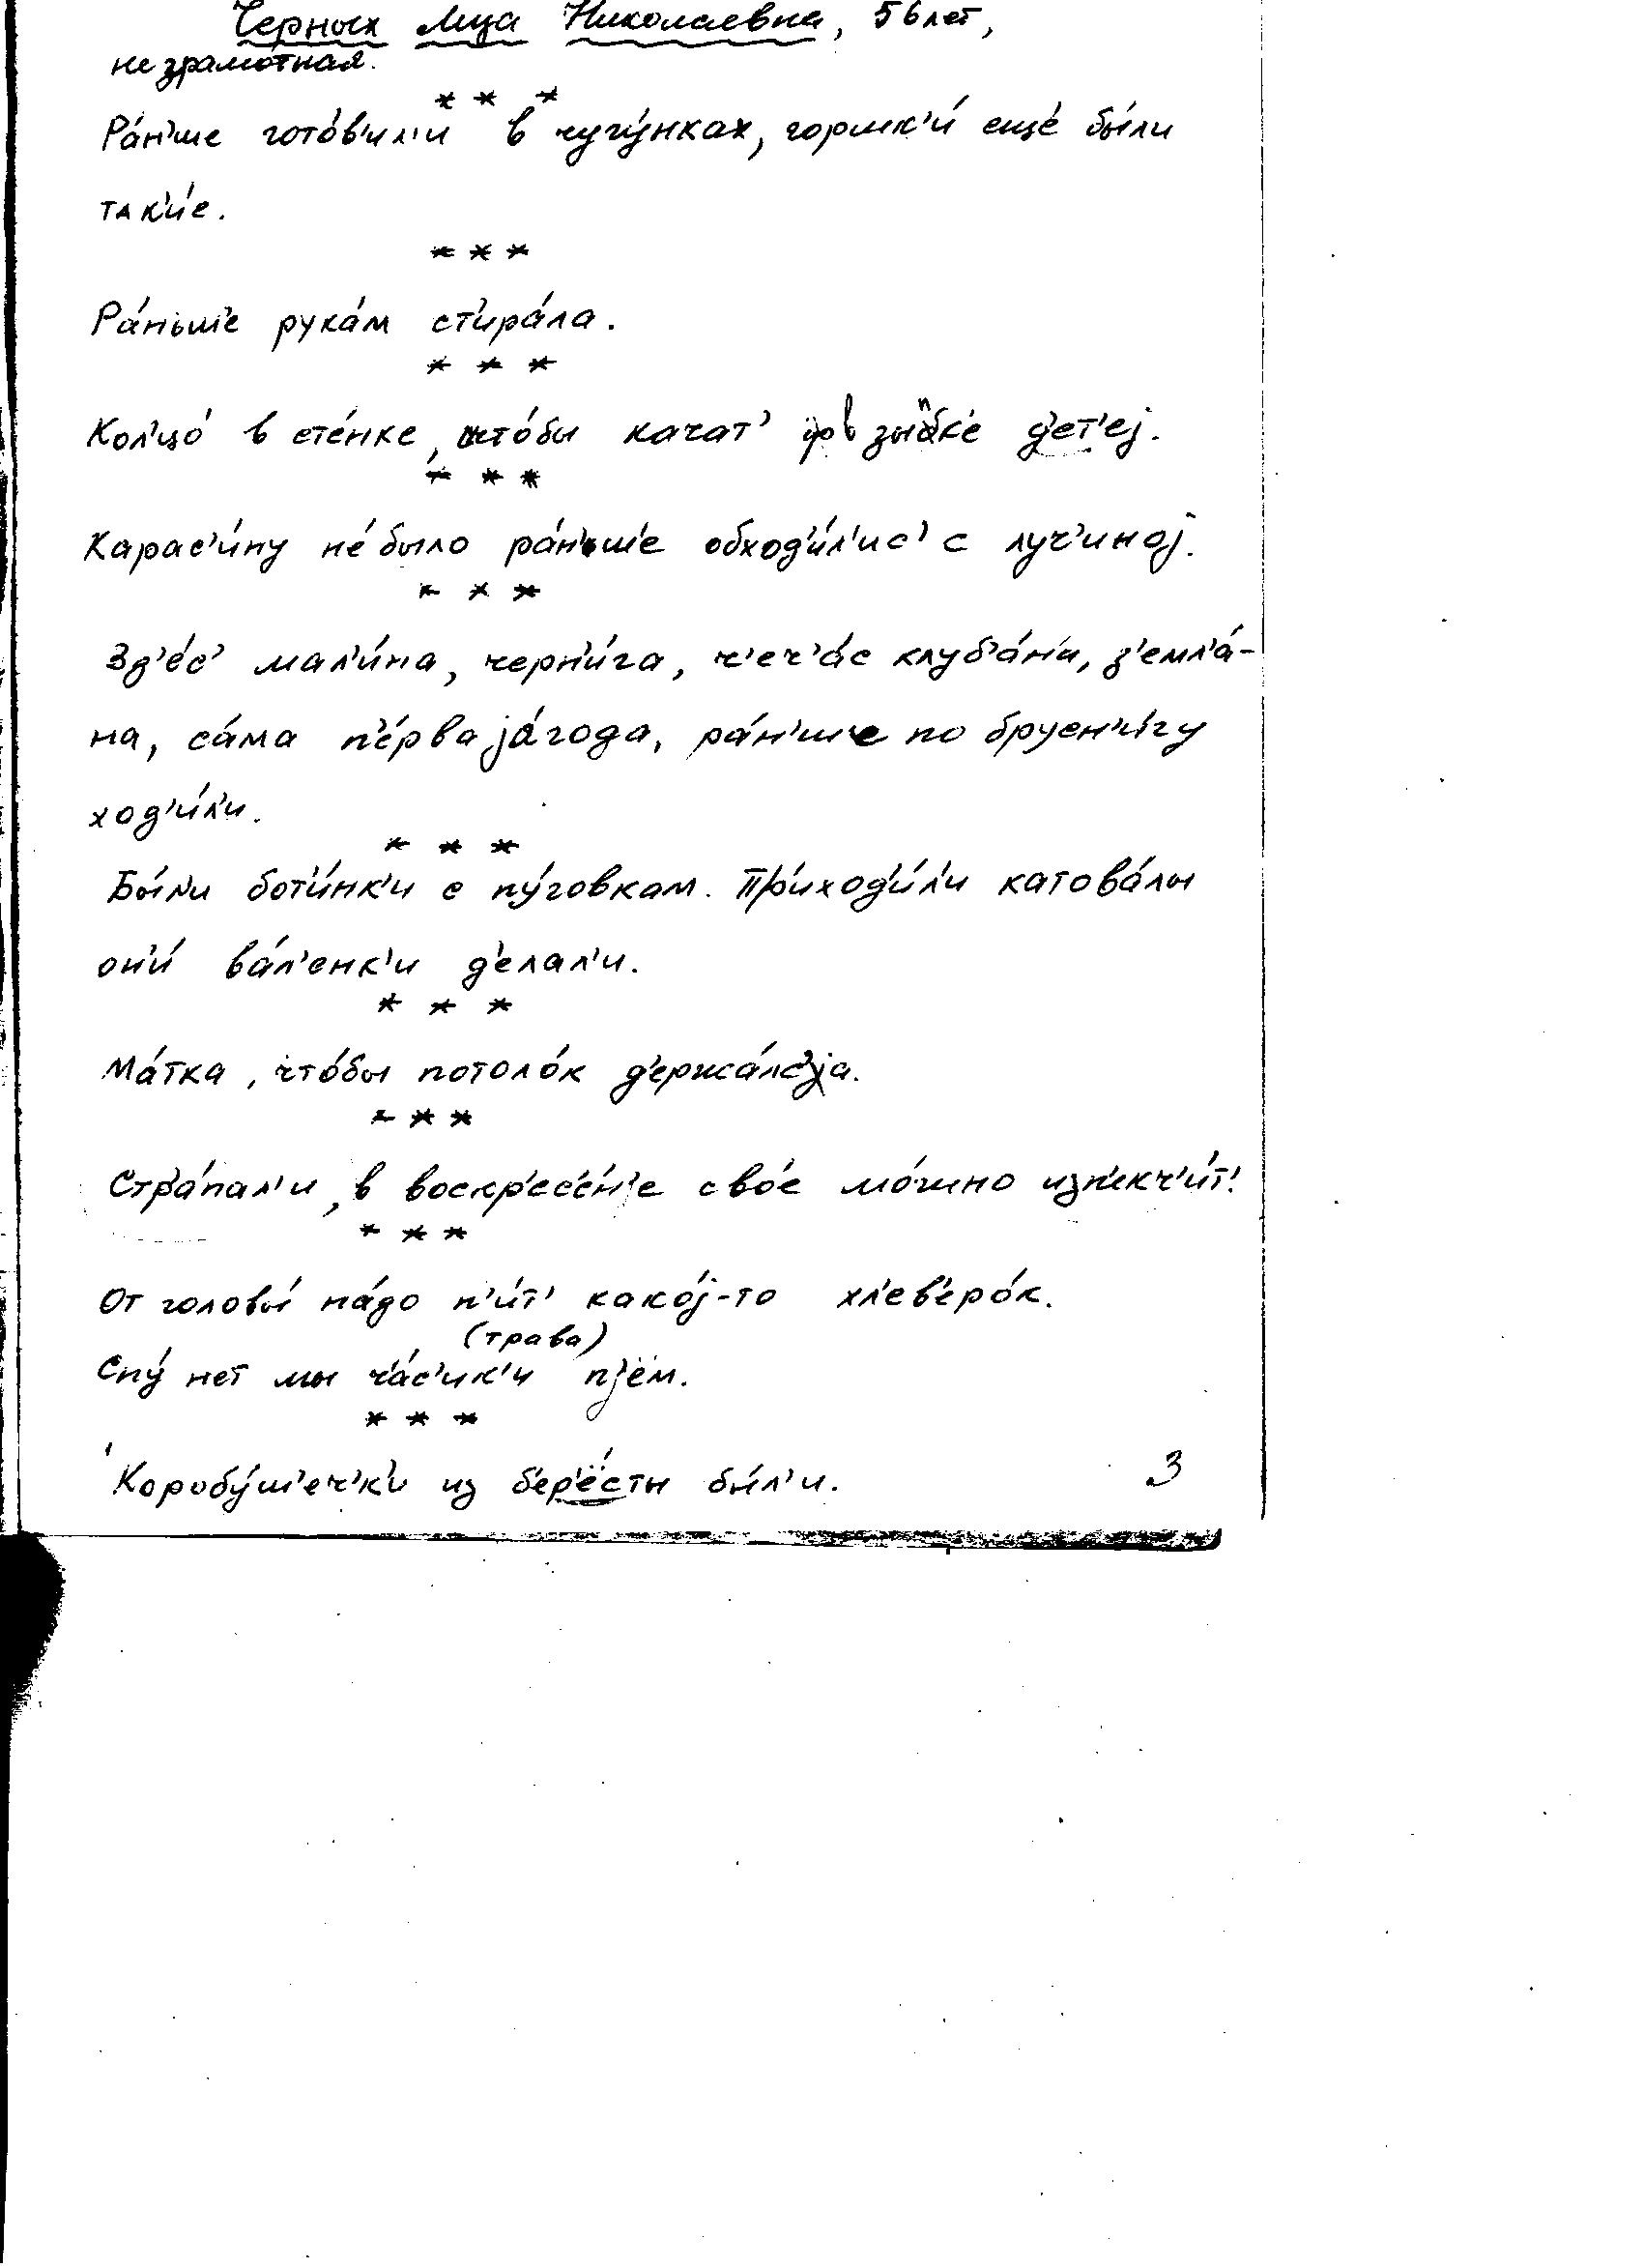 Черных Лиза Николаевна, 56 лет,
неграмотная.
* * *
Ра́н'ше гото́в'ил'и в чугу́нках, горшк'и́ ещё бы́ли
так'и́е.
* * *
Ра́ньше рука́м ст'ира́ла.
* * *
Кол'цо́ в сте́нке, што́бы качат' в зы́пк'е д'ет'еј.
* * *
Карас'и́ну не́ было ра́н'ше обход'и́л'ис' с луч'иној.
* * *
Зд'е́с' мал'и́на, черн'и́га, ч'еч'а́с клуб'а́н'и, з'емл'а́-
на, са́ма п'е́рва ја́года, ра́н'ше по брусн'и́гу
ход'и́л'и.
* * *
Бы́л'и бот'и́нк'и с пу́говкам. Пр'иход'и́л'и катова́лы
он'и́ ва́л'енк'и д'елал'и.
* * *
Ма́тка, что́бы потоло́к д'ержа́лс'а.
* * *
Стр'а́пал'и, в воскр'ес'е́н'је свое́ мо́жно изп'екч'и́т'.
* * *
От головы́ на́до п'и́т' како́ј-то хл'ев'еро́к.
(трава)
Сну́ нет мы ч'а́с'ик'и пјём.
* * *
Коробу́ш'еч'к'и из б'ер'ёсты бы́л'и.
3